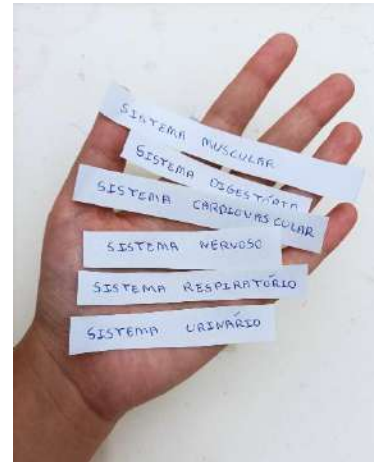 SISTEMA MUSCULAR
SISTEMA DIGESTÓRIO
SISTEMA CARDIOVASCULAR
SISTEMA NERVOSO
SISTEMA RESPIRATÓRIO
SISTEMA URINÁRIO